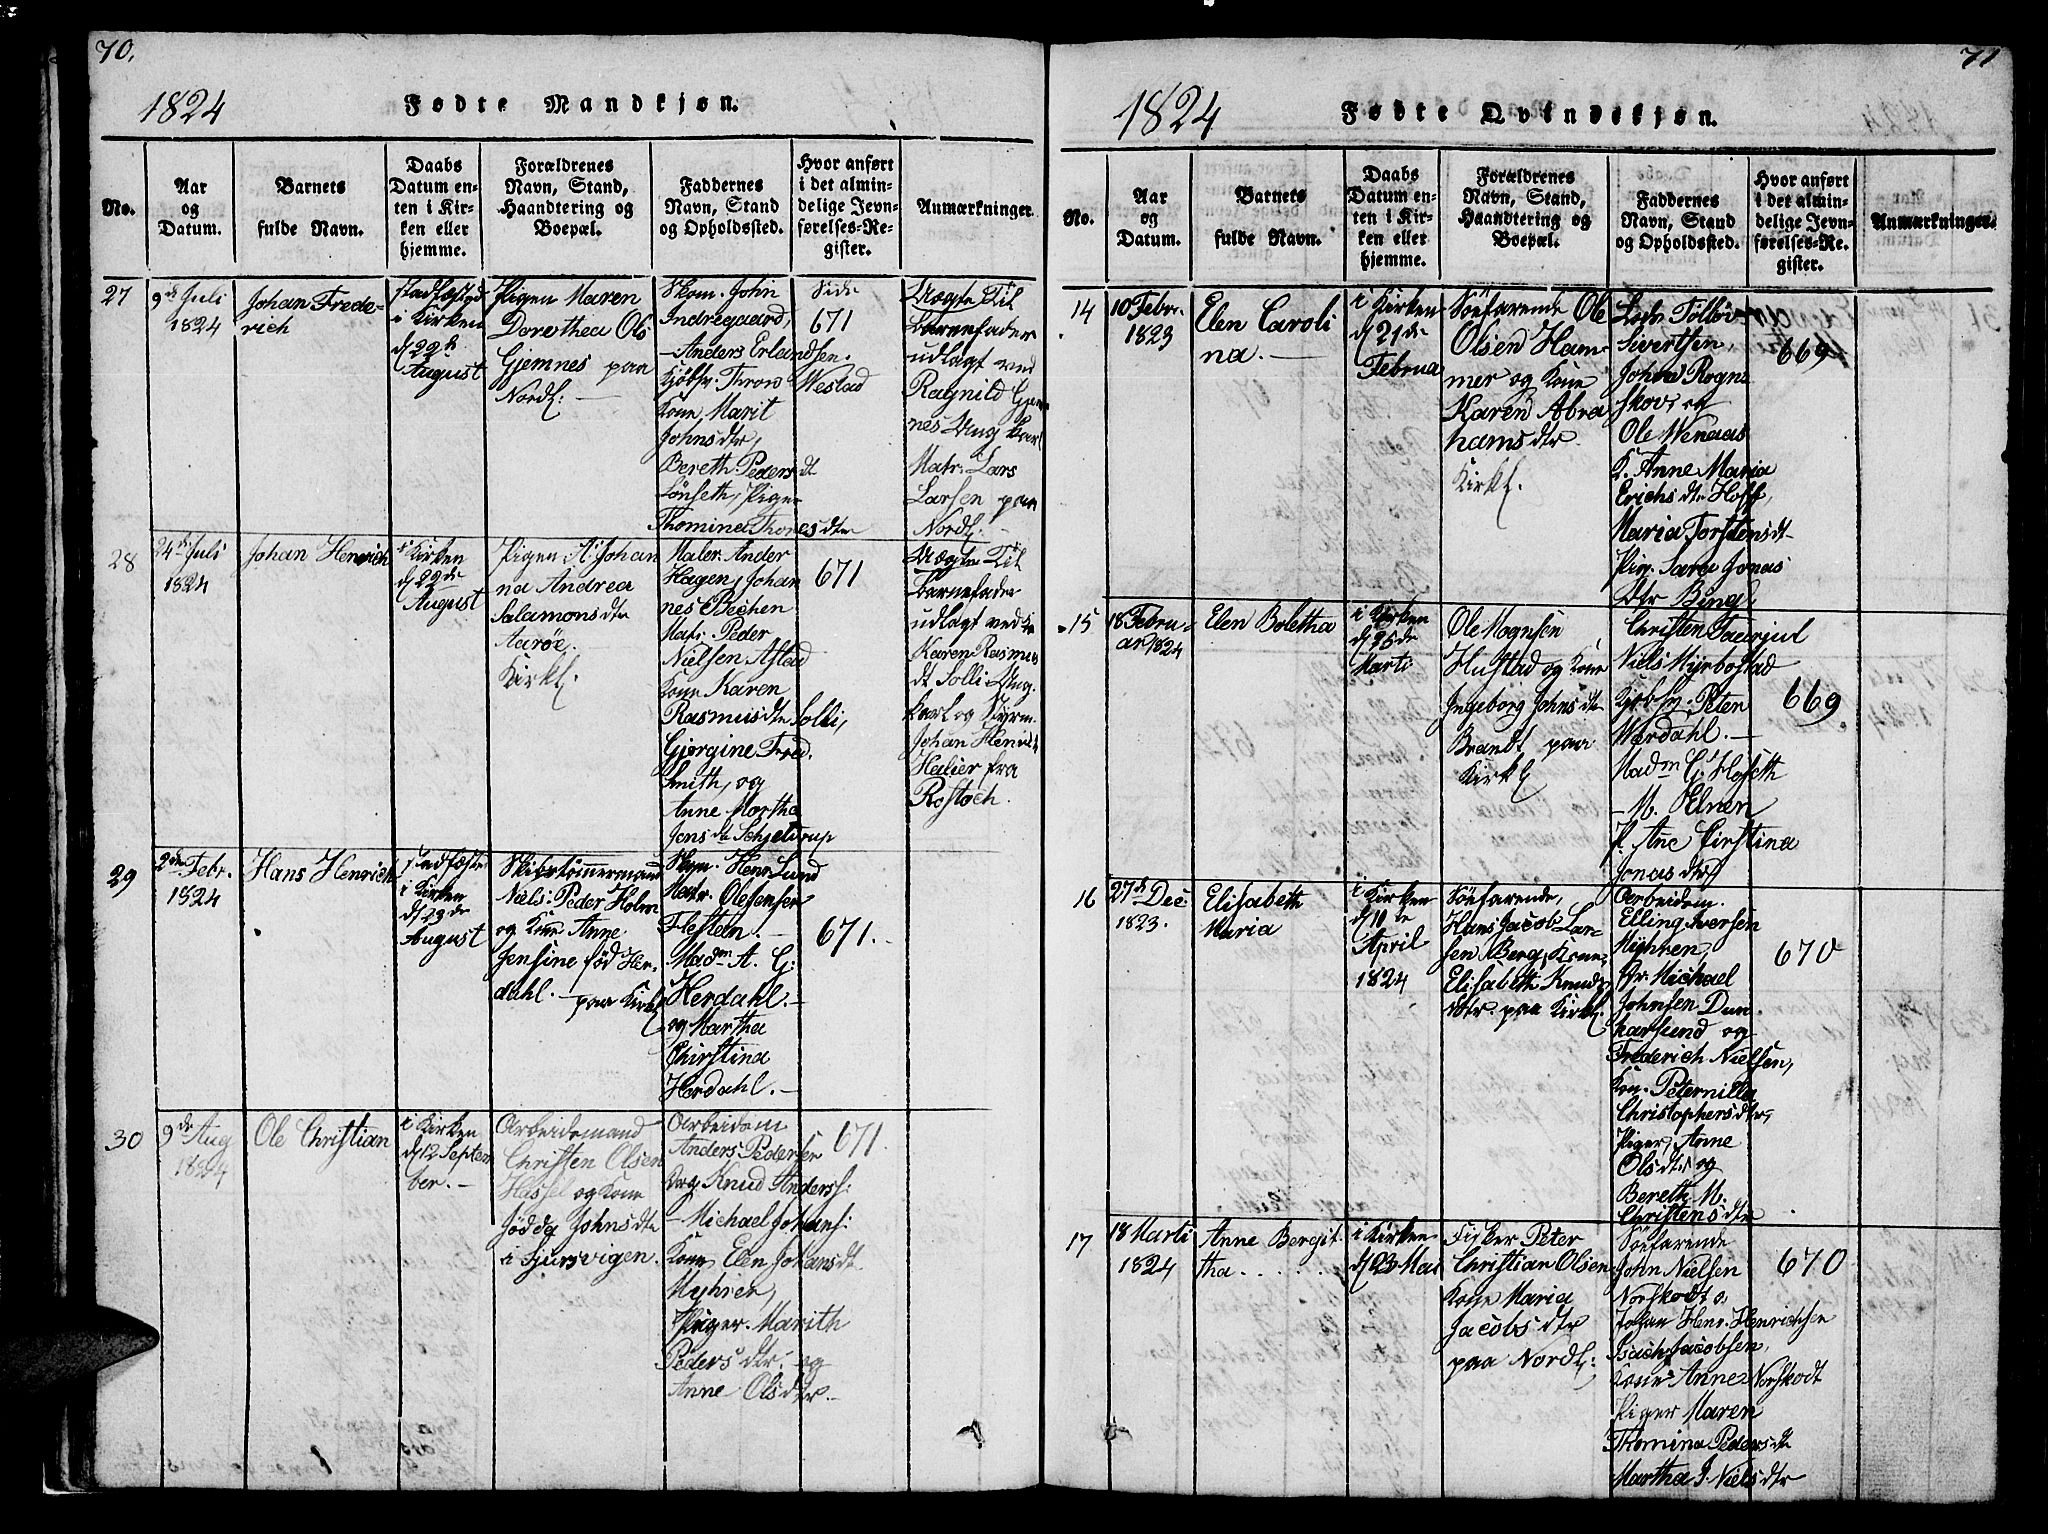 70.
1824
Fødte Mandkjøn.
No.
Aar
og
Datum.
Barnets
fulde Navn.
Daabs
Datum en-
ten i Kir-
ken eller
hjemme.
Forældrenes
Navn, Stand,
Haandtering og
Boepæl.
Faddernes
Navn, Stand
og Opholdssted.
Hvor anført
i det almin-
delige Jevn-
førelses-Re-
gister.
Anmærkninger
27
9de Juli
1824
Johan Frede-
rich
stadfæstet
i Kirken
d 22de
August
Pigen Maren
Dorethea Ols
Gjemnes paa
Nordl: —
Skom. John
Indregaard,
Anders Erlandsen.
Kjøbsv. Thron Westad
Kone Marit
Johnsdtr,
Bereth Pedersdt
Lönseth, Piger
Thomina Thoresdtr
Side
671
Uægte Til
Barnefader
udlagt ved
Ragnild Gjem
nes Ung karl
Matr. Lars
Larsen paa
Nordl:
28
24de Juli
1824
Johan Henrich
i Kirken
d 22de
August
Pigen A: Johan
na Andrea
Salamonsdtr
Aarøe.
Kirkl.
Maler Ander
Hagen, Johan
nes Bechen
Matr. Peder
Nielsen Astad
Kone Karen
Rasmusdtr Solli,
Gjørgine Fred.
Smith, og
Anne Martha
Jensdtr Schjelderup
671
Uægte Til
Barnefader
udlagt ved
Karen Rasmus
dt Solli Ung
karl og Styrm.
Johan Henrik
Halier fra
Rostoch.
29
2de Febr.
1824
Hans Henrich
stadfæstet
i Kirken
d 29de
August
Skibstömmermand
Niels Peder Holm
og Kone Anne
Jensine fød Her-
dahl. — paa Kirkl
Skom. Henr Lund
Matr. Ole Jensen
Flesten. —
Madm A. G:
Herdahl. —
og Martha
Chirstina
Herdahl. —
671.
30
9de Aug
1824
Ole Christian
i Kirken
d 12 Septem
ber. —
Arbeidsmand
Christen Olsen
Hassel og Kone
Jødda Johnsdtr
i Sjursvigen.
Arbeidsm
Anders Pedersen
Drg Knud Anders:
— Michael Johans:
Kone Elen Johansdt
Myhren,
Piger. Marith
Peders dtr. og
Anne Olsdtr. —
671.
71
1824
Fødte Qvindekjøn.
No.
Aar
og
Datum.
Barnets
fulde Navn.
Daabs
Datum en-
ten i Kir-
ken eller
hjemme.
Forældrenes
Navn, Stand,
Haandtering og
Boepæl.
Faddernes
Navn, Stand
og Opholdssted.
Hvor anført
i det almin-
delige Jevn-
førelses-Re-
gister.
Anmærkninger.
14
10 Febr.
1823
Elen Caroli
na. —
i Kirken
d 21de
Februa
Söefarende Ole
Olsen Ham-
mer og Kone
Karen Abra
hamsdtr
Kirkl.
Lods Tolløv
Sivertsen
Johan Rogne
skov, og
Ole Wenaas
K. Anne Maria
Erichsdtr Hoff,
Maria Torstensdt
Pig. Sara Jonas
dtr Bing.
669
15
18 Febru-
ar 1824
Elen Boletha
i Kirken
d 25de
Marti
Ole Mognsen
Hustad og Kone
Ingeborg Johnsdtr
Brandt paa
Kirkl
Christen Taarjul
Niels Myrbostad
Kjøbsv. Peter
Wærdahl. —
Madm G: Hoseth
— M. Elnen
P. Ane Cirstina
Jonasdtr
669
16
27de Dec
1823.
Elisabeth
Maria
i Kirken
d 11de
April
1824
Söefarende,
Hans Jacob Lar-
sen Berg, Kone
Elisabeth Knuds
dtr paa Kirkl.
Arbeidsm.
Elling Iversen
Myhren,
Dr. Michael
Johnsen Dun
karsund og
Frederich Nielsen,
Kon. Peternille
Christophersdtr,
Piger, Anne
Olsdtr og
Bereth M.
Christensdtr
670
17
18 Marti
1824
Anne Bergit
tha. . . . .
i Kirken
d 23 Mai
Fisker Peter
Christian Olsen
Kone Maria
Jacobsdtr
paa Nordl:
Söefarende
John Nielsen
Norskodt o,
Johan Henr. Henrichsen
Isach Jacobsen,
Kone Anne Norskodt
Piger Maren
Thomina Pedersdt
Martha J. Nielsdtr
670